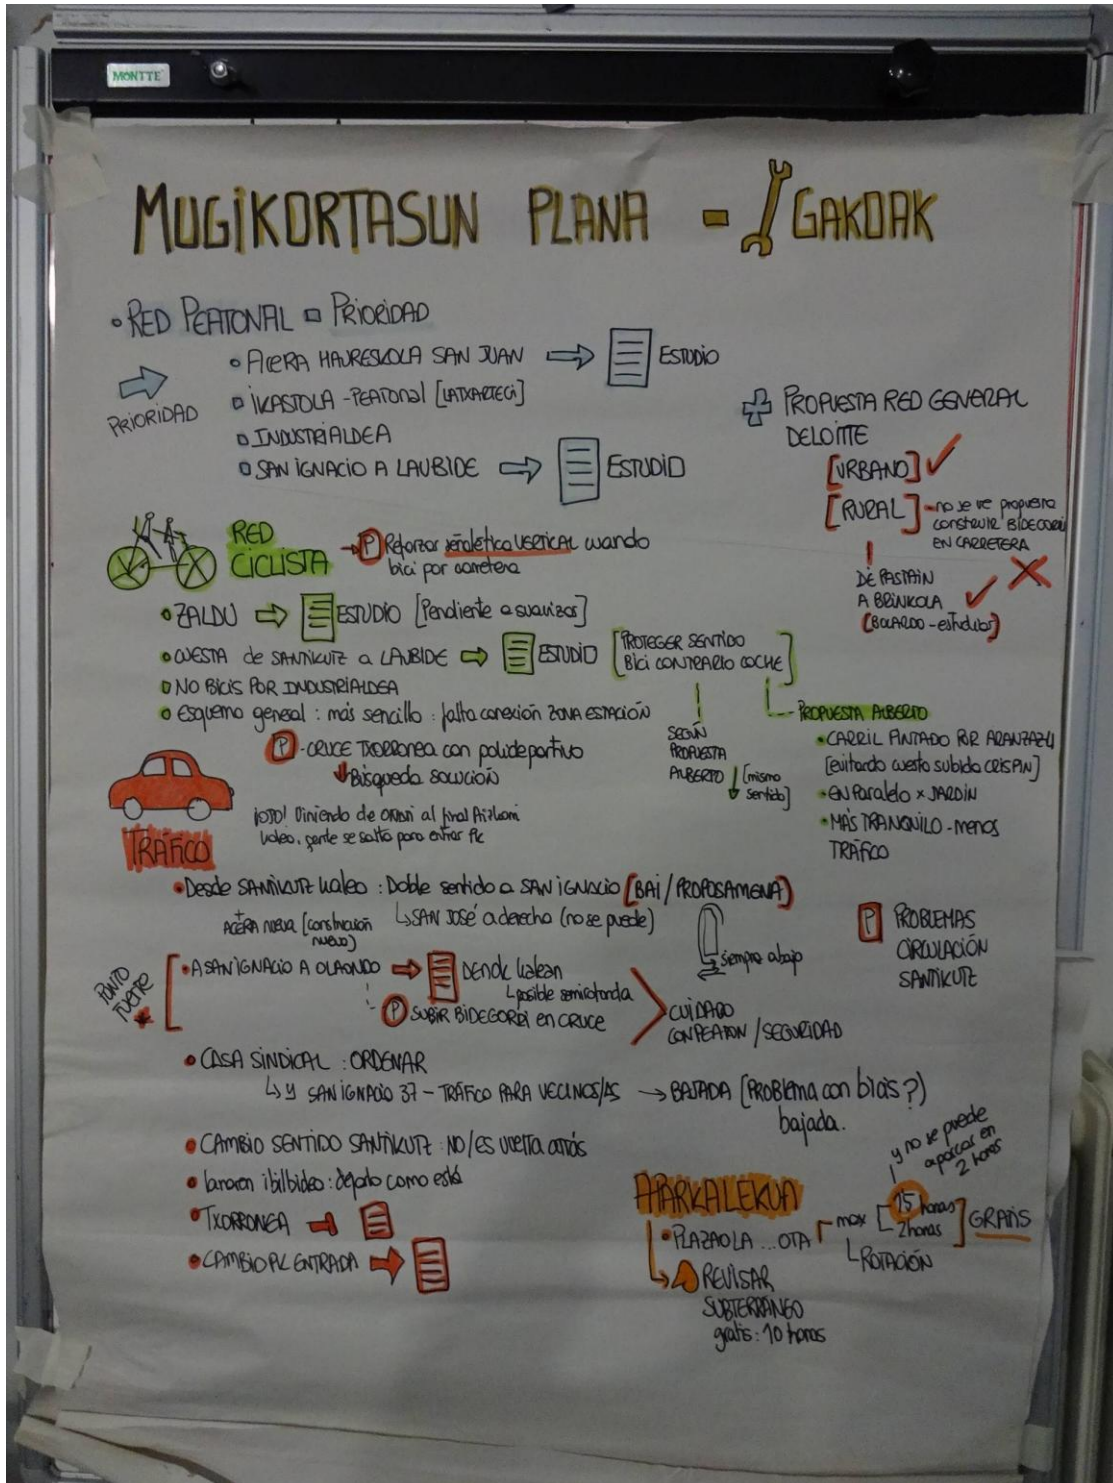 MONTTE
MUGIKORTASUN PLANA - GAKOAK
• RED PEATONAL PRIORIDAD
PRIORIDAD
• ACERA HAURESKOLA SAN JUAN → ESTUDIO
IKASTOLA - PEATONAL [LATXARTEGI]
INDUSTRIALDEA
SAN IGNACIO A LAUBIDE → ESTUDIO
+ PROPUESTA RED GENERAL
DELOITTE
[URBANO] ✓
[RURAL] - no se ve propuesta
construir BIDEGORRI
EN CARRETERA
DE PASTAIN
A BRINKOLA
(BOLARDO - estudios)
RED
CICLISTA
→ P Reforzar señalética VERTICAL cuando
bici por carretera
• ZALDU → ESTUDIO [Pendiente a suavizar]
• CUESTA de SANTIKUTZ a LAUBIDE → ESTUDIO [PROTEGER SENTIDO
BICI CONTRARIO COCHE]
NO BICIS POR INDUSTRIALDEA
• Esquema general : más sencillo : falta conexión ZONA ESTACIÓN
SEGÚN
PROPUESTA
ALBERTO ↓ [mismo
sentido]
PROPUESTA ALBERTO
• CARRIL PINTADO POR ARANZAZU
[evitando cuesta subida CRISPIN]
• EN Paralelo x JARDIN
• MÁS TRANQUILO - menos
TRÁFICO
P - CRUCE TXORRONEA con polideportivo
↓ Búsqueda solución
¡OJO! Viniendo de OÑATI al final
kalea, gente se salta para entrar PK
TRÁFICO
• Desde SANTIKUTZ kalea : Doble sentido a SAN IGNACIO [BAI / PROPOSAMENA]
↳ SAN JOSÉ a derecha (no se puede)
+
ACERA nueva [construcción
nueva]
siempre abajo
P PROBLEMAS
CIRCULACIÓN
SANTIKUTZ
PUNTO
FUERTE
• A SAN IGNACIO A OLAONDO → DENOK kalean
↳ posible semirotonda
P SUBIR BIDEGORRI en CRUCE
CUIDADO
CON PEATON / SEGURIDAD
• CASA SINDICAL : ORDENAR
↳ y SAN IGNACIO 37 - TRÁFICO PARA VECINOS/AS → BAJADA [PROBLEMA con bicis ?]
bajada.
• CAMBIO SENTIDO SANTIKUTZ : NO / ES vuelta atrás
• lanaren ibilbidea : dejarlo como está
• TXORRONEA →
• CAMBIO PK ENTRADA →
APARKALEKUA
• PLAZAOLA ... OTA
max [15 horas
2 horas] GRATIS
y no se puede
aparcar en
2 horas
↳ ROTACIÓN
REVISAR
SUBTERRÁNEO
gratis : 10 horas